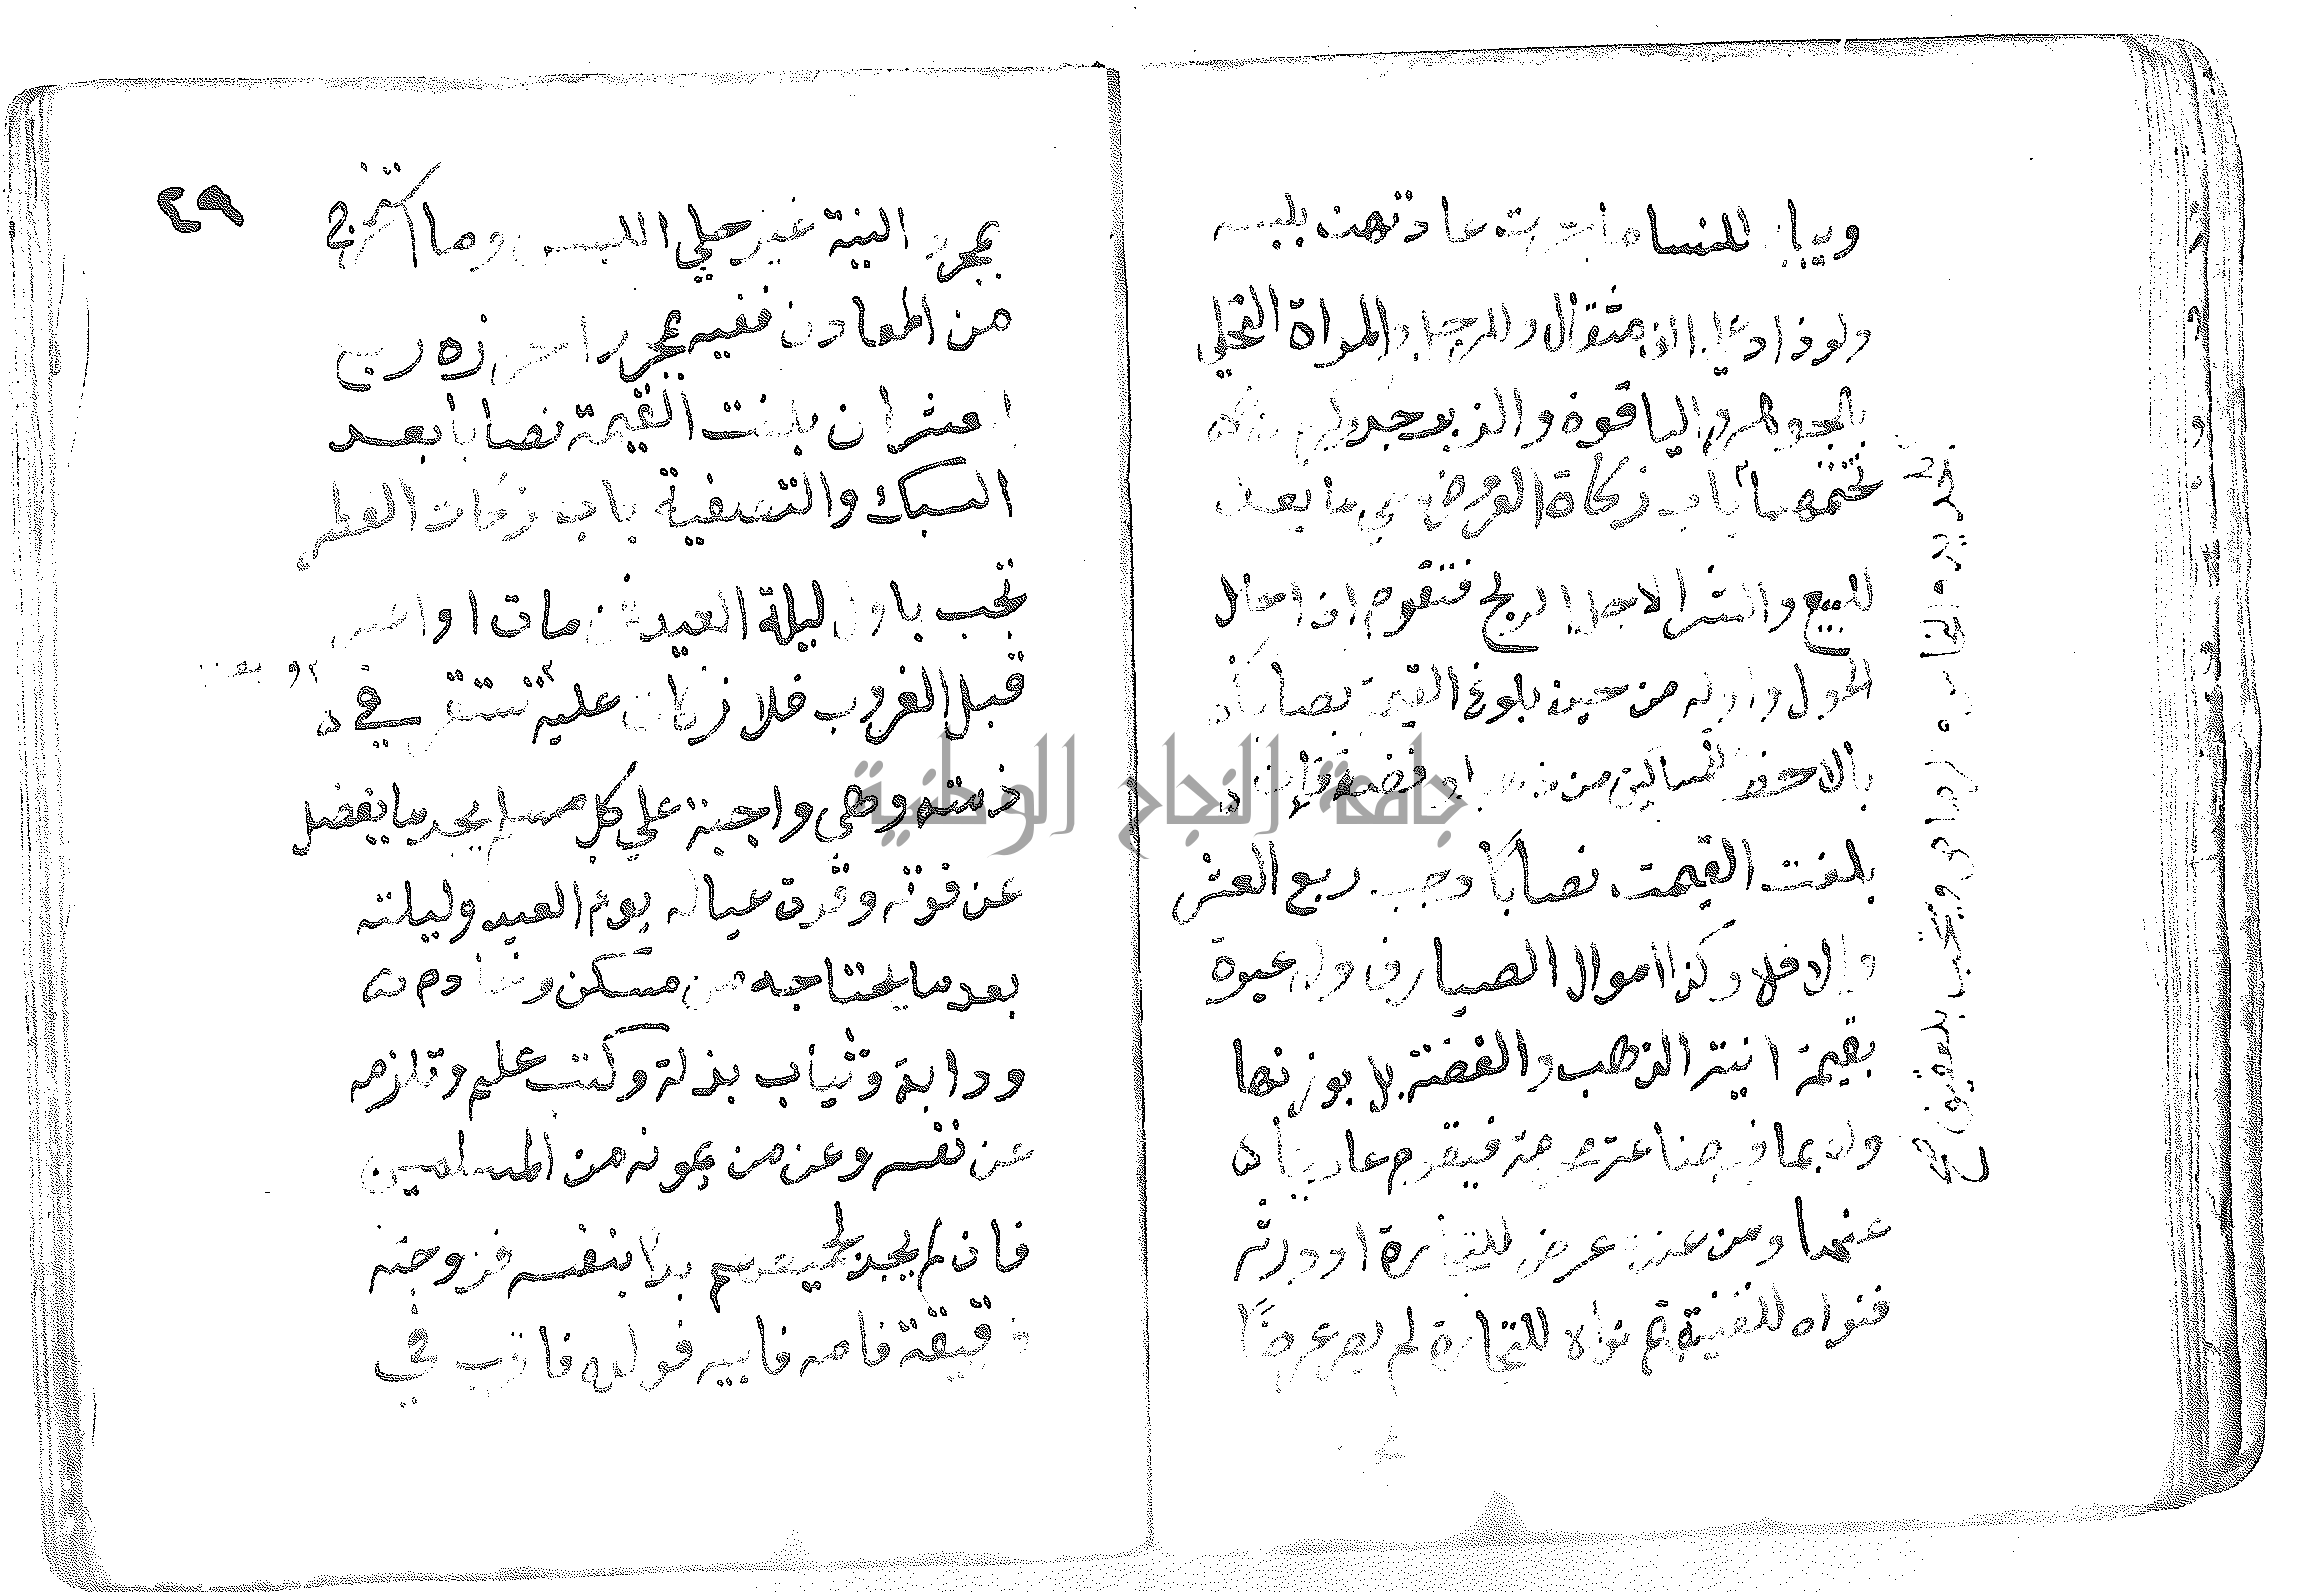 ويباح للنسا ما جرت عادتهن بلبسه
ولو زاد على الف مثقال وللرجل والمراة التحلي
بالجوهر والياقوة والزبرجد
تختمهما باب زكاة العروض هي ما يعد
للبيع والشرا لاجل الربح فتقوم اذا حال
الحول واوله من حين بلوغ القيمة نصابا
بالاحظ للمساكين من ذهب او فضة فإن
بلغت القيمت نصابا وجب ربع العشر
والا فلا وكذا اموال الصيارف ولا عبرة
بقيمة انية الذهب والفضة بل بوزنها
ولا بما فيه صناعة محرمة فيقوم عاريا
عنها ومن عنده عرض للتجارة او ورثه
فنواه للقنية ثم نواه للتجارة لم يصر عرضا
٢٩
بمجرد النية غير حلي اللبس وما استخرج
من المعادن ففيه بمجرد احرازه ربع
العشر ان بلغت القيمة نصابا بعد
السبك والتصفية باب زكات الفطر
تجب باول ليلة العيد فمن مات او اعسر
قبل الغروب فلا زكات عليه تستقر في
ذمته وهي واجبة علي كل مسلم يجد ما يفضل
عن قوته وقوت عياله يوم العيد وليلته
بعد ما يحتاجه من مسكن وخادم
ودابة وثياب بذلة وكتب علم وتلزمه
عن نفسه وعن من يمونه من المسلمين
فان لم يجد لجميعهم بدا بنفسه فزوجته
فرقيقه فامه فابيه فولده فاقرب في
جامعة النجاح الوطنية